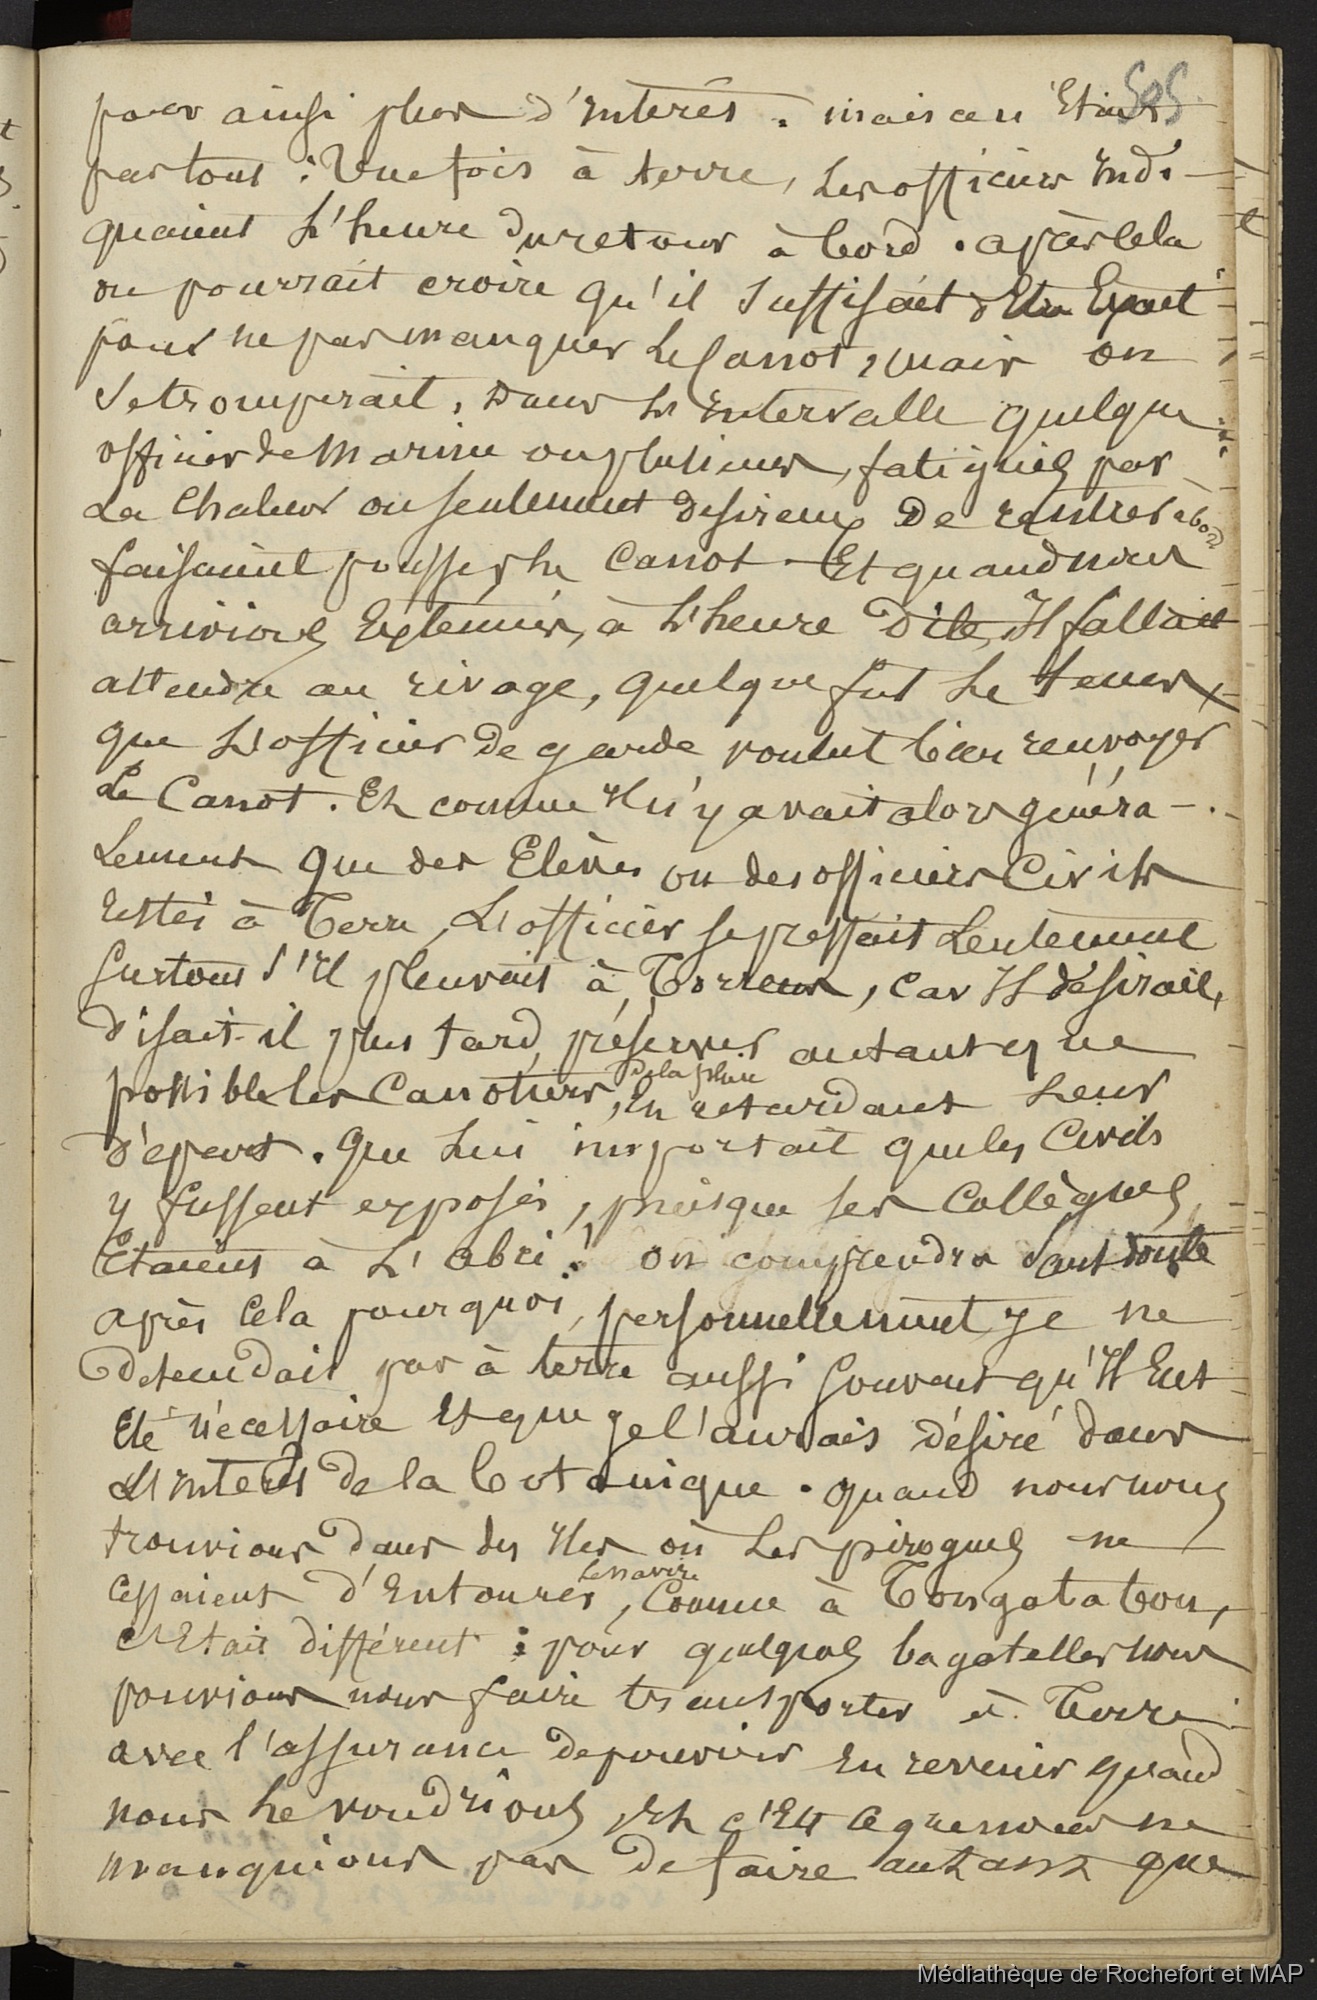 505
pour ainsi plus d'interês. mais on Etait
partout : Une fois à terre, Les officiers indi-
quaient L'heure du retour à bord. après cela
on pourrait croire qu'il suffisait d'Etre Exact
pour ne pas manquer le Canot, mais on
se tromperait. Dans L'Intervalle quelque
officier de Marine ou plusieurs, fatigués par
La Chaleur ou seulement desireux De rentrer abord
faisaient pousser le Canot. Et quand nous
arrivions Exténués, à L'heure Dite, Il fallait
attendre au rivage, quelque fut Le tems,
que L'officier de garde voulut bien renvoyer
Le Canot. Et comme Il n'y avait alors généra-
Lement que des Elèves ou des officiers Civils
restés à Terre, L'officier se pressait Lentement
Surtout s'Il pleuvait à Torrens, car Il désirait,
disait-il plus tard, préserver autant que
possible les Canotiers de la pluie, En retardant Leur
départ. Que Lui importait que les Civils
y fussent exposés, puisque ses Collègues
Etaient à L'abri ! on comprendra sans doute
après Cela pourquoi, personnellement, je ne
descendais pas à terre aussi souvent qu'Il Eut
Eté nécessaire Et que je l'aurais désiré dans
L'interês de la botanique. quand nous nous
trouvions dans des Iles où Les pirogues ne
cessaient d'Entourer Le navire, Comme à Tongatabou,
c'Etait différent : pour quelques bagatelles nous
pouvions nous faire transporter à Terre
avec l'assurance de pouvoir En revenir quand
nous Le voudrions, Et c'Est ce que nous ne
manquions pas de faire autant que
Médiathèque de Rochefort et MAP